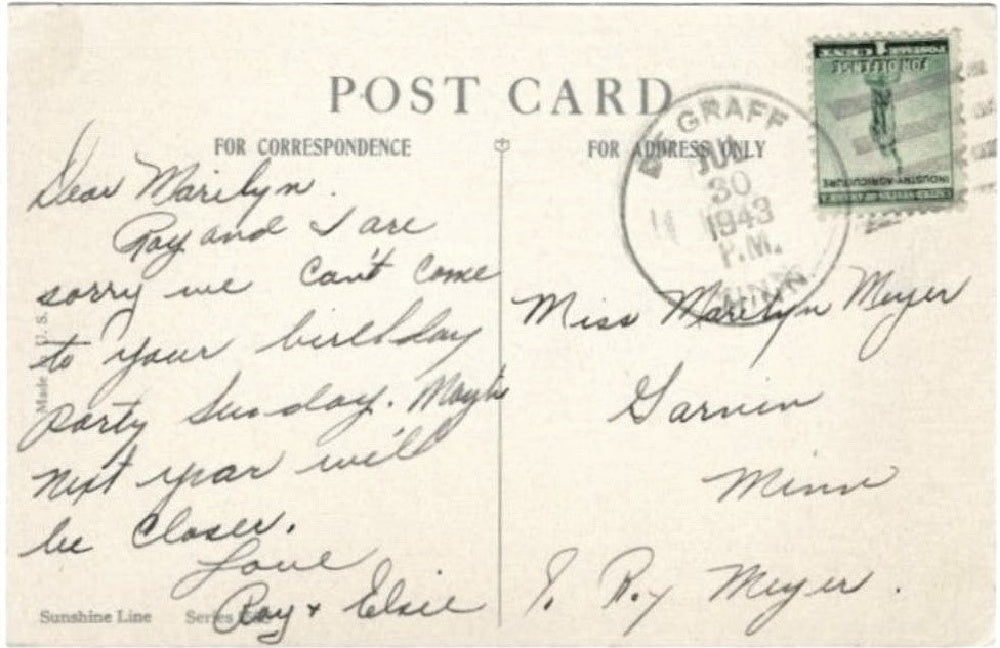 POST CARD
FOR CORRESPONDENCE
FOR ADDRESS ONLY
GRAFF
JUN
30
1943
P.M.
MINN.
1 CENT 1 POSTAGE
FOR DEFENSE
INDUSTRY·AGRICULTURE
UNITED STATES OF AMERICA
Dear Marilyn.
Ray and I are
sorry we can't come
to your birthday
party Sunday. Maybe
next year we'll
be closer.
Love
Ray + Elsie
Miss Marilyn Meyer
Garvin
Minn
Ray Meyer.
Made U.S.
Sunshine Line
Series